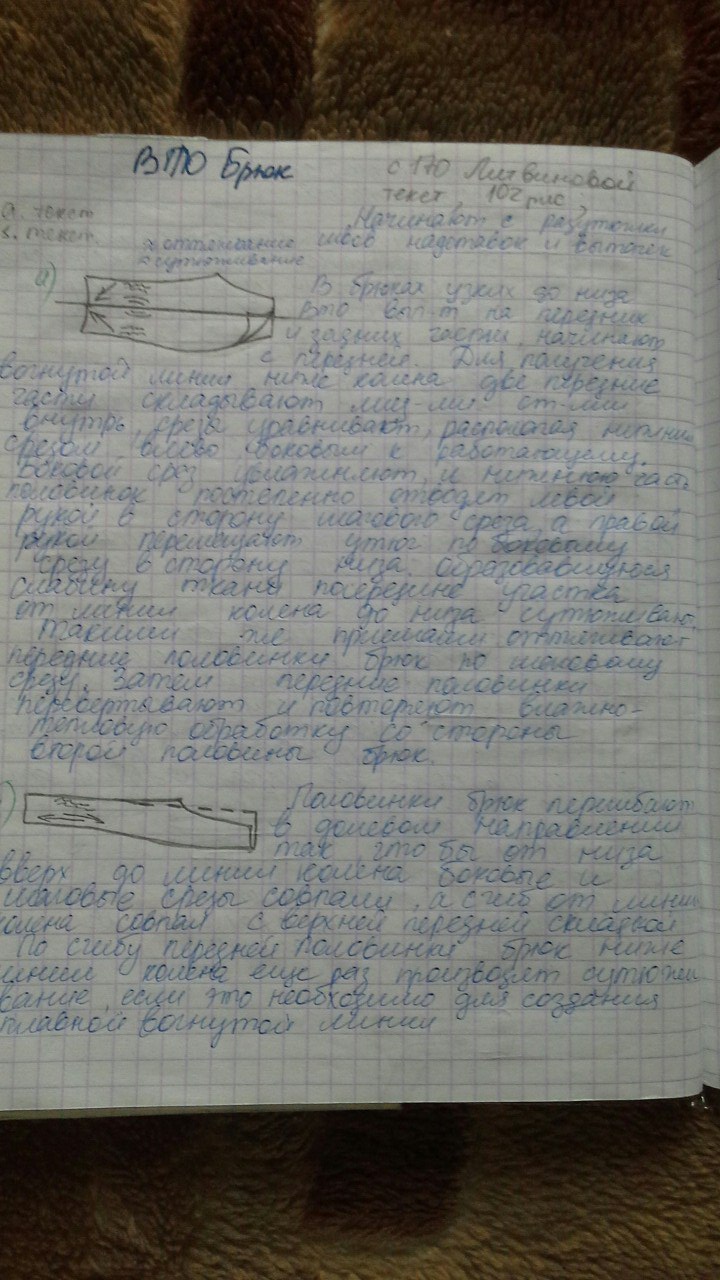 ВТО Брюк
с 170 Литвиновой
текст 102 рис
а. текст
в. текст
Начинают с разутюжки
≈ оттягивание швов надставок и вытачек
≈ сутюживание
а) В брюках узких до низа
ВТО вып-т на передних
и задних части, начинают
с передней. Для получения
вогнутой линии ниже колена две передние
части складывают лиц-ми ст-ми
внутрь, срезы уравнивают, располагая нижним
срезом влево боковым к работающему.
Боковой срез увлажняют, и нижнюю часть
половинок постепенно отводят левой
рукой в сторону шагового среза, а правой
рукой перемещают утюг по боковому
срезу в сторону низа. Образовавшуюся
слабину ткани посередине участка
от линии колена до низа сутюживают.
Такими же приёмами оттягивают
передние половинки брюк по шаговому
срезу. Затем передние половинки
перевертывают и повторяют влажно-
тепловую обработку со стороны
второй половины брюк.
) Половинки брюк перегибают
в долевом направлении
так, что бы от низа
вверх до линии колена боковые и
шаговые срезы совпали, а сгиб от линии
колена совпал с верхней передней складкой
По сгибу передней половинки брюк ниже
линии колена еще раз производят сутюжи
вание, если это необходимо для создания
плавной вогнутой линии